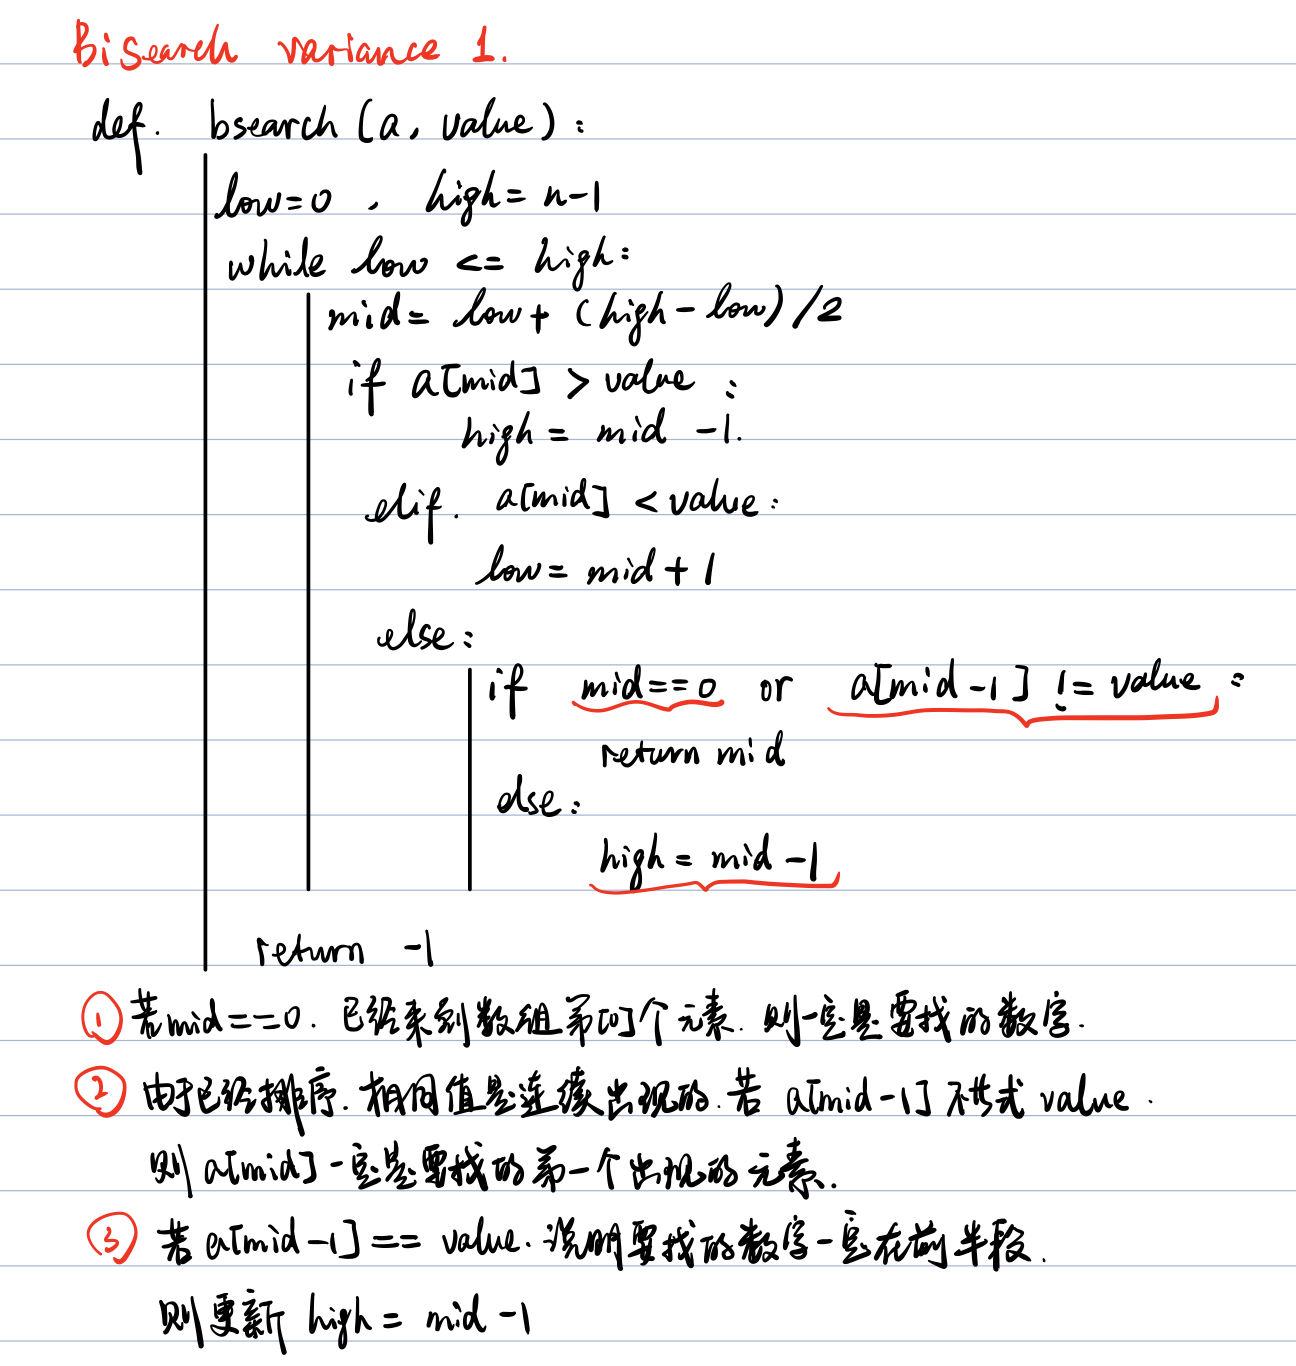 Bisearch variance 1.
def. bsearch (a, value):
low=0, high=n-1
while low <= high:
mid= low+ (high-low)/2
if a[mid] > value :
high = mid -1.
elif. a[mid] < value:
low= mid+1
else:
if mid==0 or a[mid-1] != value :
return mid
else:
high= mid-1
return -1
① 若mid==0. 已经来到数组第[0]个元素. 则一定是要找的数字.
② 由于已经排序. 相同值是连续出现的. 若 a[mid-1] 不 value.
则 a[mid]一定是要找的第一个出现的元素.
③ 若 a[mid-1]== value. 说明要找的数字一定在前半段.
则更新 high= mid-1